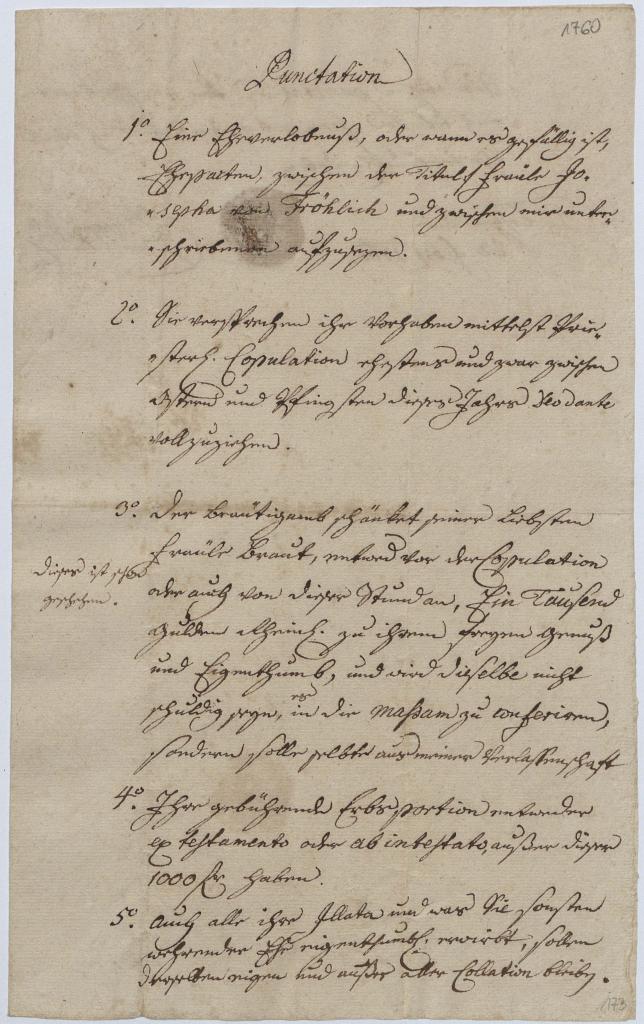 1760
Punctation
1º. Eine Eheverlobnuß, oder wann es gefällig ist,
Ehepacten, zwischen der Titul. Fraüle Jo-
-sepha von Fröhlich und zwischen mir unter-
-schriebenen aufzusezen.
2º. Sie versprechen ihr Vorhaben mittelst Prie-
-sterl. Copulation ehestens und zwar zwischen
Ostern und Pfingsten dieses Jahrs Deo dante
vollzuziehen.
3º. Der Bräutigamb schänket seiner Liebsten
Fraüle Braut, entwed vor der Copulation
oder auch von dieser Stund an, Ein Tausend
Gulden Rheinl. zu ihrem freyen Genuß
und Eigenthumb, und wird dieselbe nicht
schuldig seyn, es in die Maßam zu conferiren,
sondern solle selbte aus meiner Verlassenschaft
dieses ist schon
geschehen.
4º. Ihre gebührende Erbsportion entweder
ex testamento oder ab intestato, außer dieser
1000 fr haben.
5º. Auch alle ihre Illata und was Sie sonsten
wehrender Ehe eigenthumbl. erwirbt, sollen
derselben eigen und außer aller Collation bleiben.
173